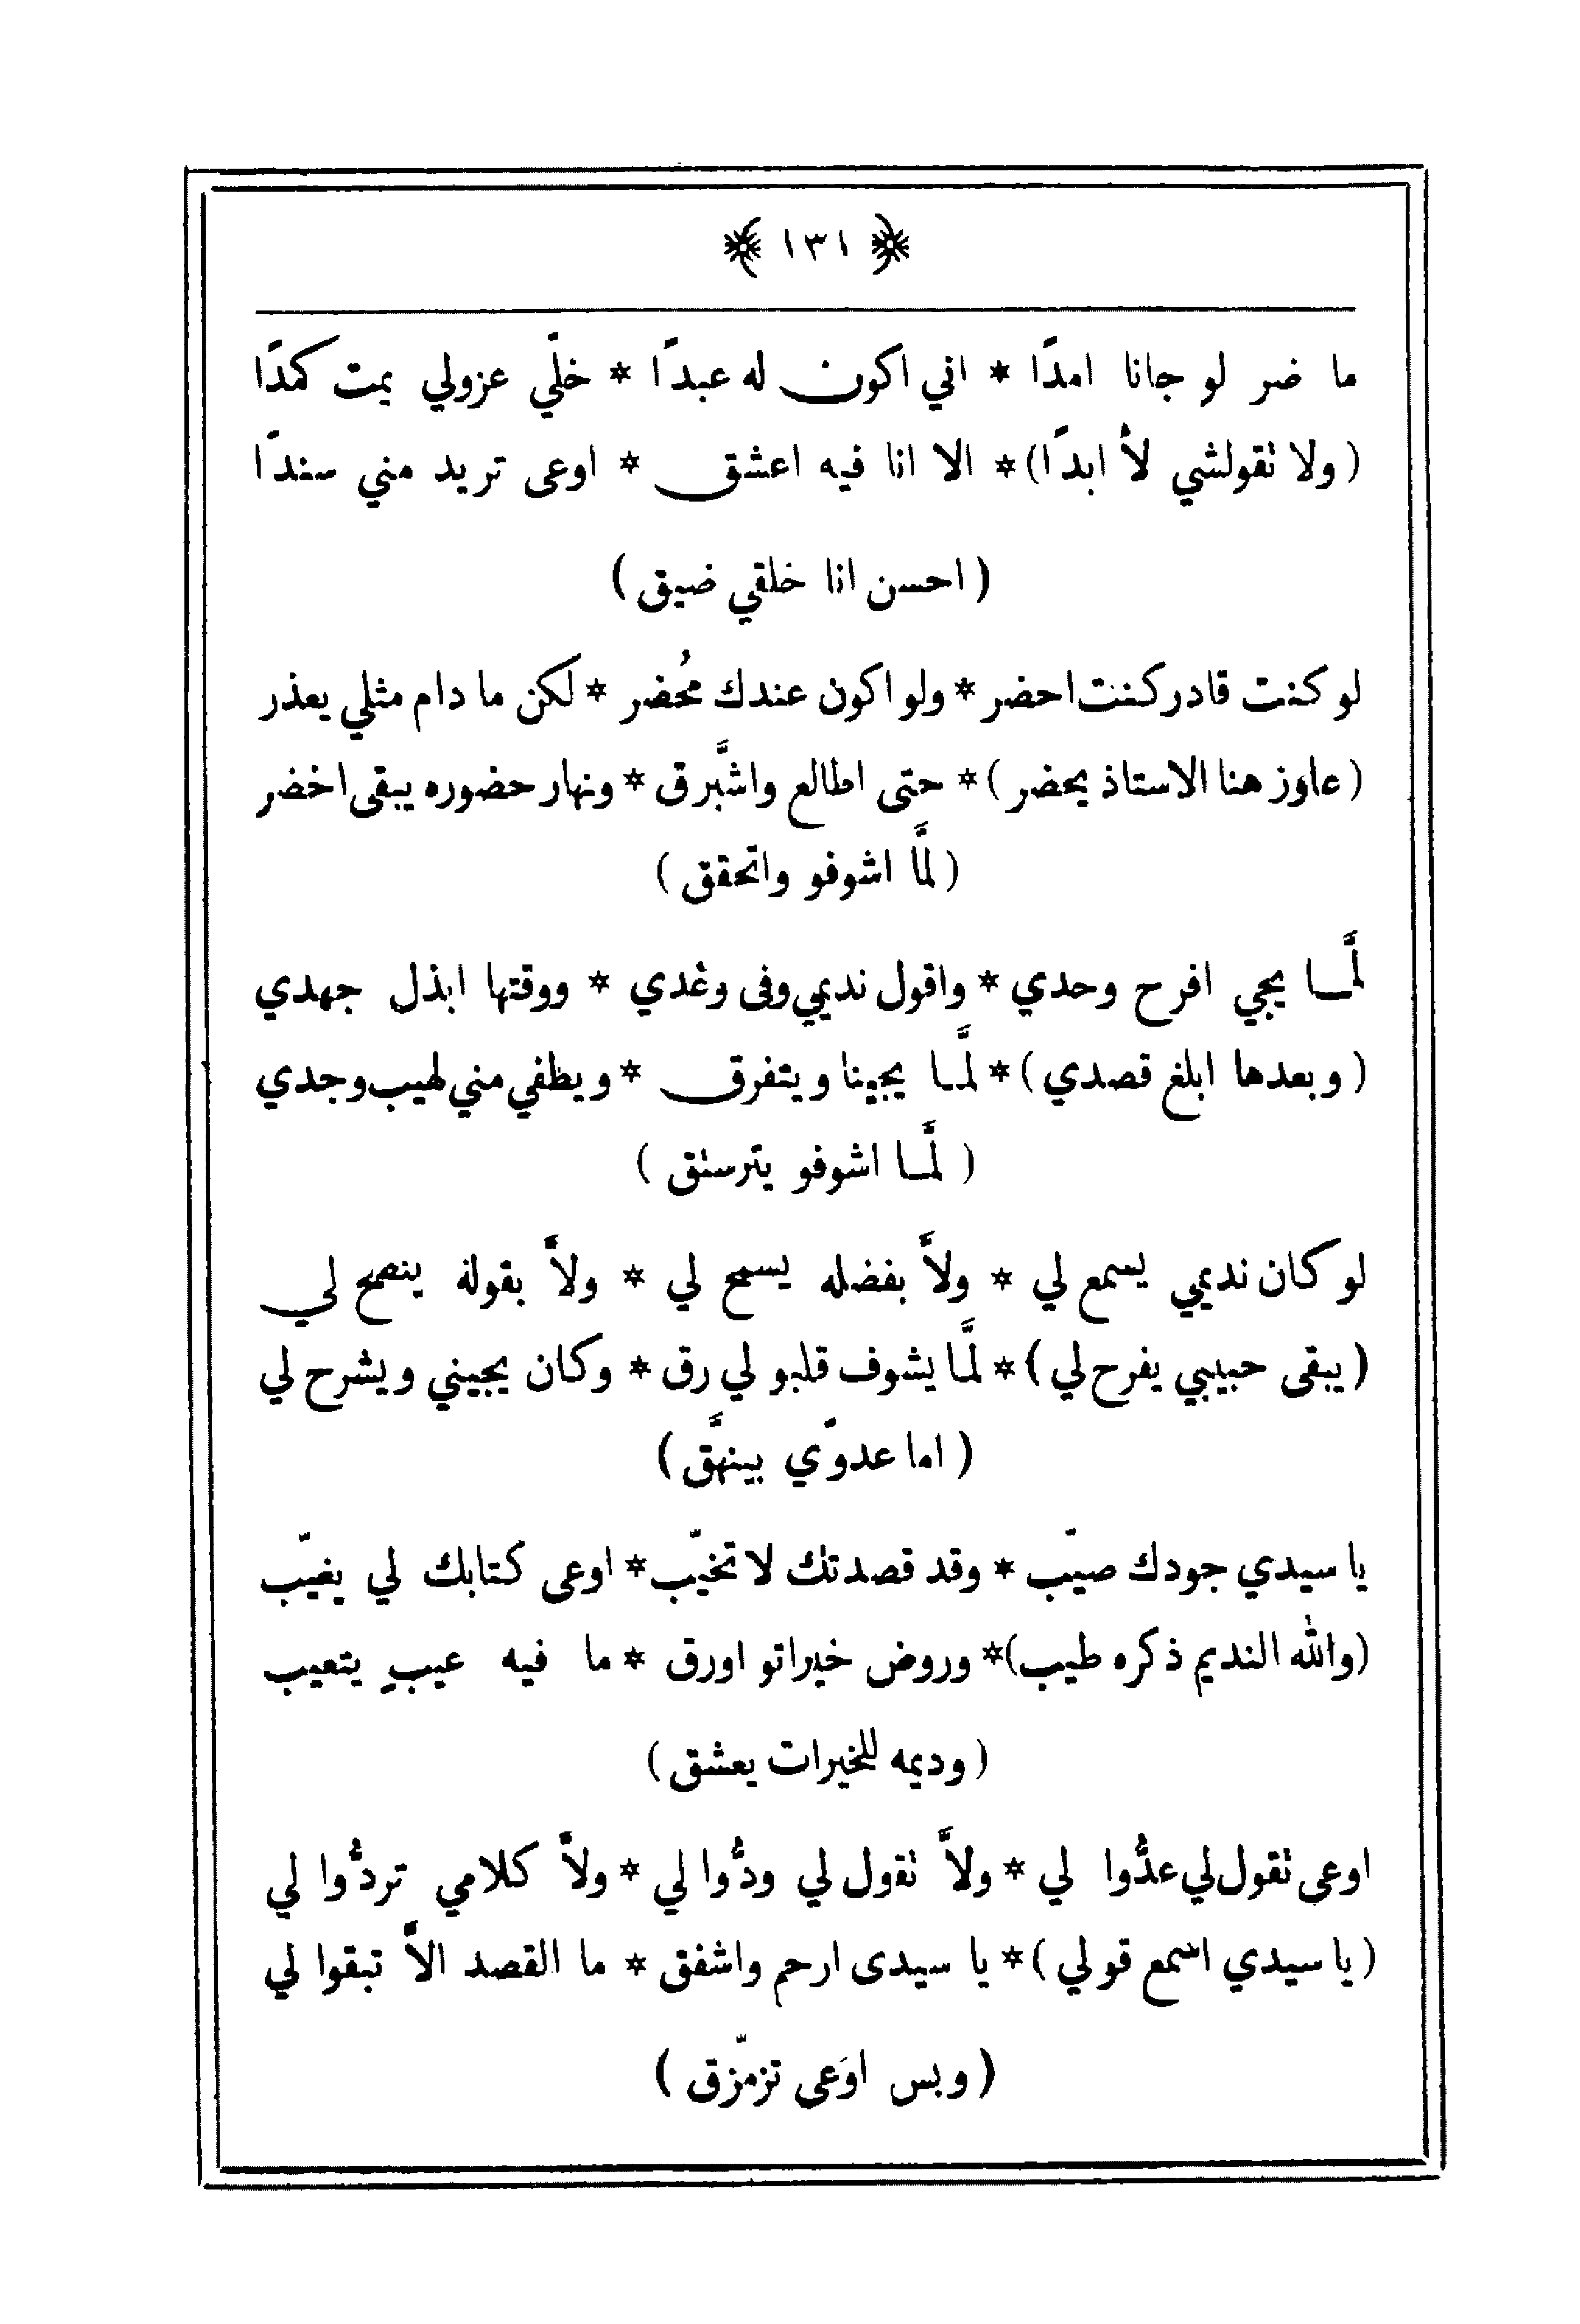 ١٣١
ما ضر لو جانا امدًا * اني اكون له عبدًا * خلّي عزولي يمت كمدًا
(ولا نقولشي لأ ابدًا) * الا انا فيه اعشق * اوعى تريد مني سندًا
(احسن انا خلقي ضيق)
لو كنت قادر كنت احضر * ولو اكون عندك مُحضر * لكن ما دام مثلي يعذر
(عاوز هنا الاستاذ يحضر) * حتى اطالع واشَّبرق * ونهار حضوره يبقى اخضر
(لمَّا اشوفو واتحقق)
لمَّا يجي افرح وحدي * واقول نديمي وفى وغدي * ووقتها ابذل جهدي
(وبعدها ابلغ قصدي) * لمَّا يجينا ويتفرق * ويطفي مني لهيب وجدي
(لمَّا اشوفو يترستق)
لو كان نديمي يسمع لي * ولاَّ بفضله يسمح لي * ولاَّ بقولة ينصح لي
(يبقى حبيبي يفرح لي) * لمَّا يشوف قلبو لي رق * وكان يجيني ويشرح لي
(اما عدوّي بينهَّق)
يا سيدي جودك صيّب * وقد قصدتك لا تخيّب * اوعى كتابك لي يغيّب
(والله النديم ذكره طيب) * وروض خيراتو اورق * ما فيه عيبٍ يتعيب
(وديمه للخيرات يعشق)
اوعى نقول لي عدُّوا لي * ولاَّ نقول لي ودُّوا لي * ولاَّ كلامي تردُّوا لي
(يا سيدي اسمع قولي) * يا سيدى ارحم واشفق * ما القصد الاَّ تبقوا لي
(وبس اوَعى تزمزّق)